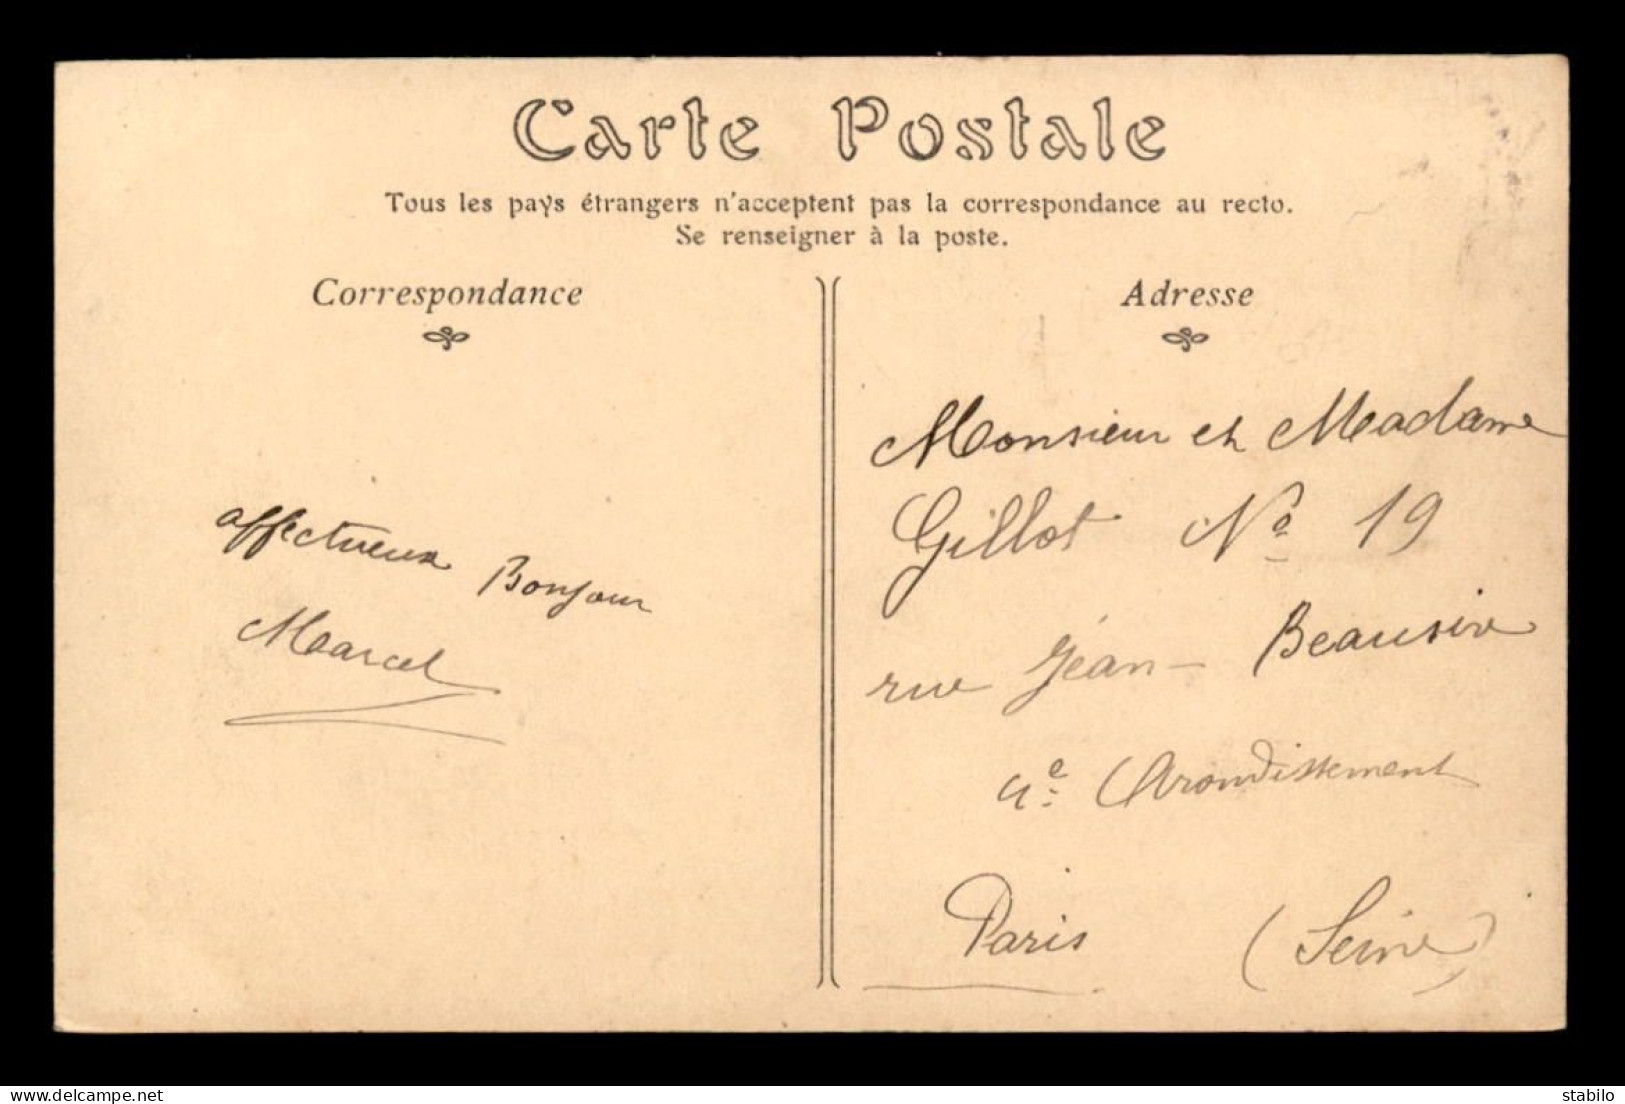 Carte Postale
Tous les pays étrangers n'acceptent pas la correspondance au recto.
Se renseigner à la poste.
Correspondance
affectueux Bonjour
Marcel
Adresse
Monsieur et Madame
Gillot No 19
rue Jéan - Beausire
4e Arondissement
Paris (Seine)
delcampe.net
stabilo